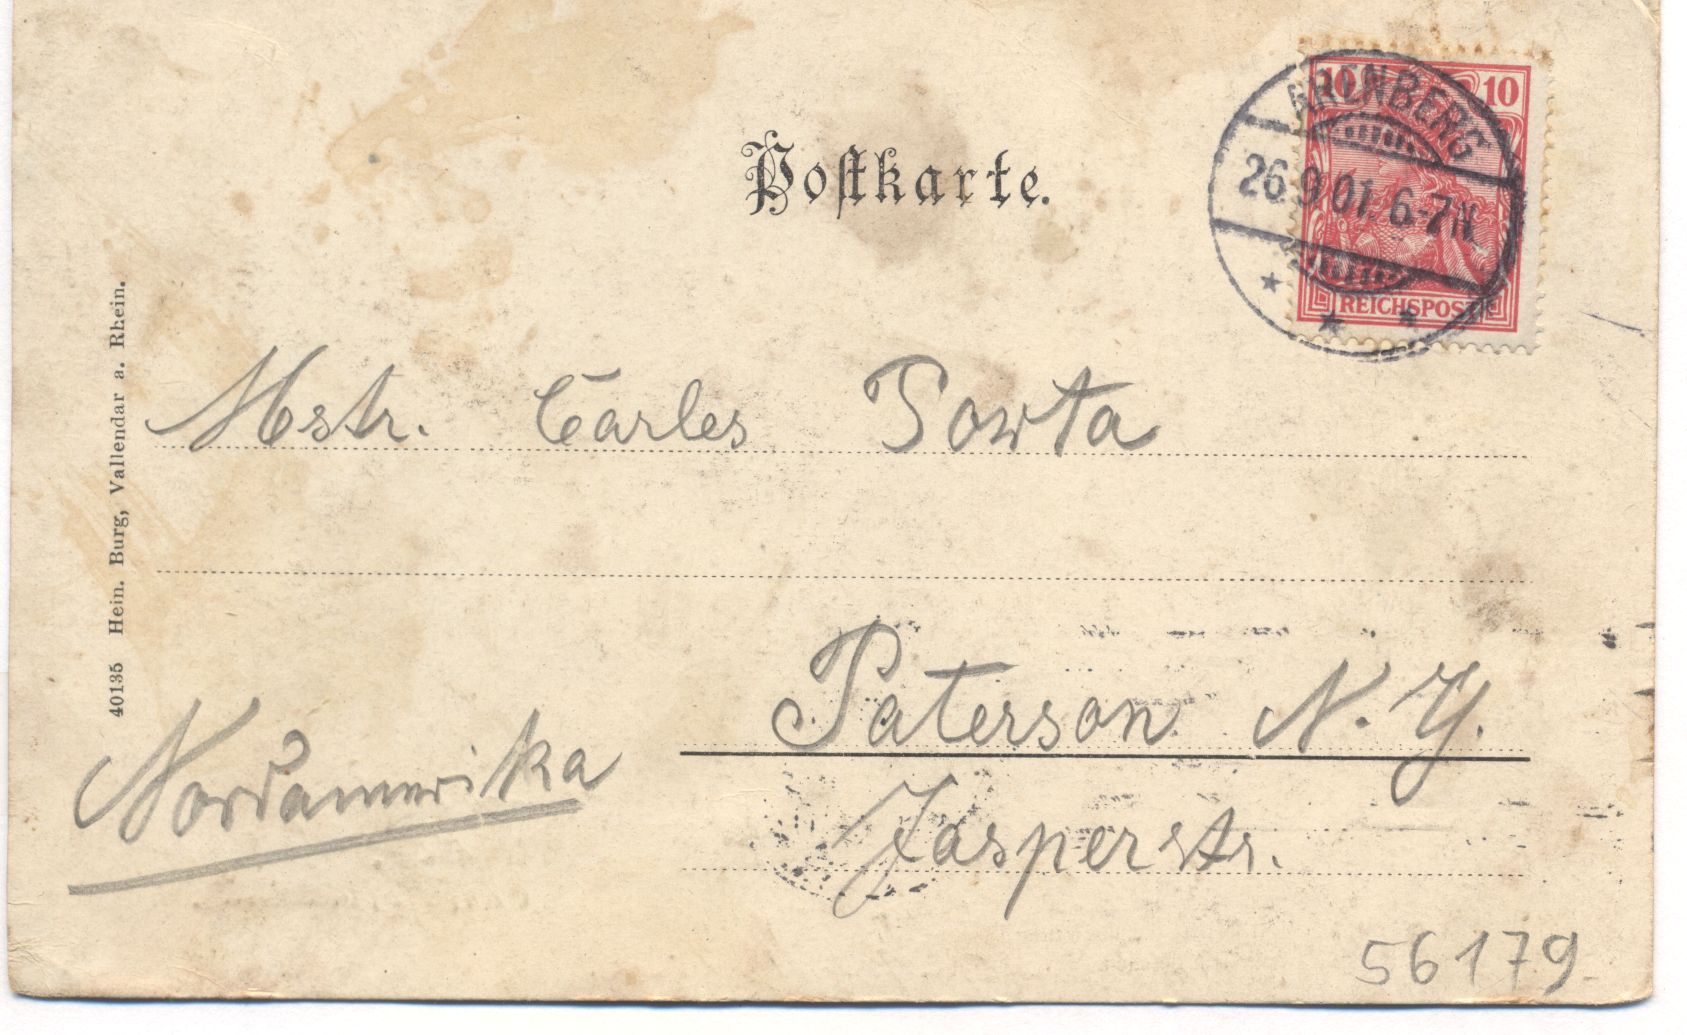 Postkarte.
10 10
ARENBERG
26.9.01. 6-7N.
REICHSPOST
Mstr. Carles Porta
Paterson N. Y.
Jasperstr.
Nordamerika
40135 Hein. Burg, Vallendar a. Rhein.
56179